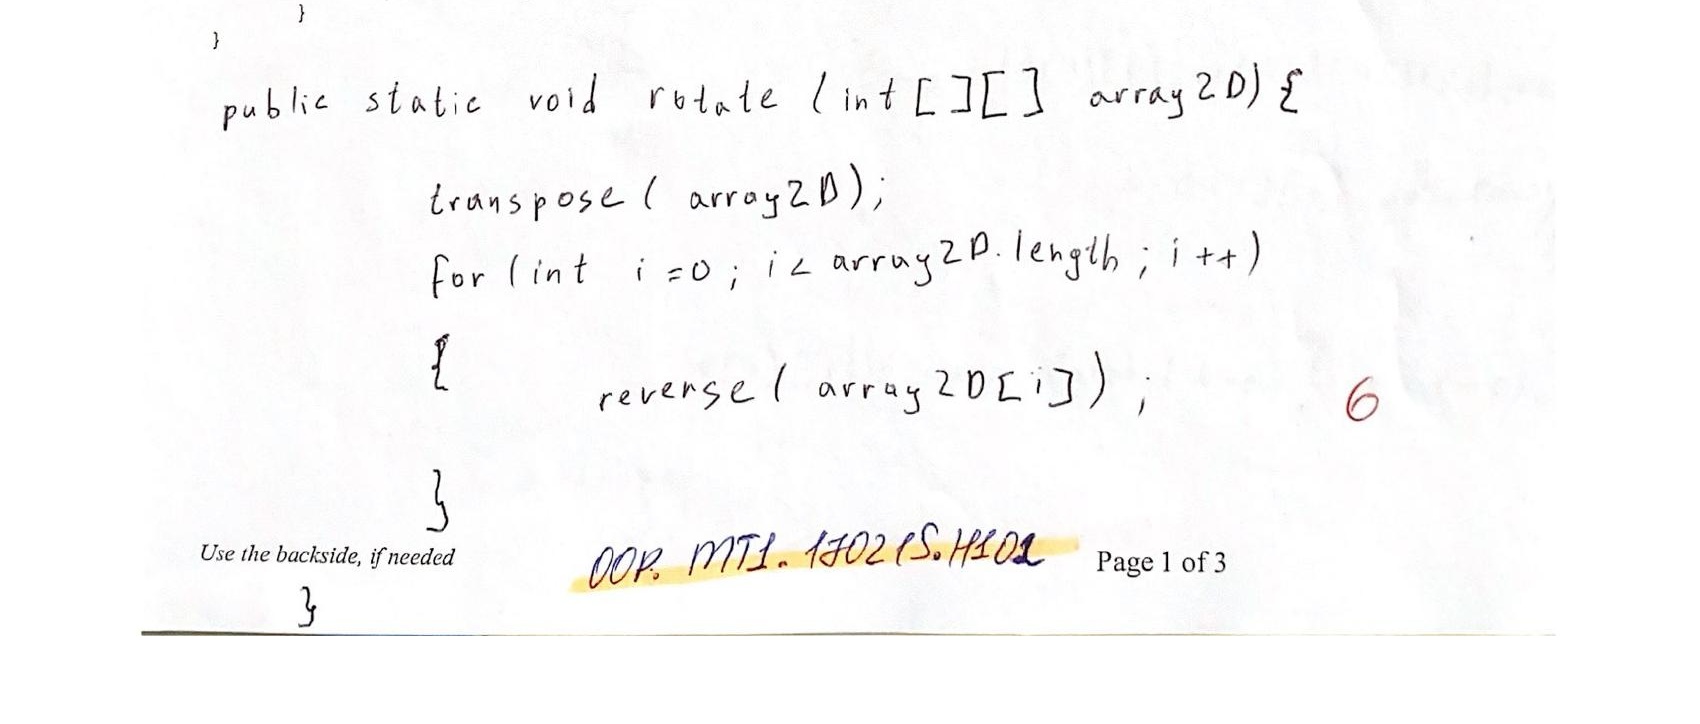 }
}
public static void rotate (int[][] array2D) {
transpose( array2D);
for (int i=0; i< array2D.length; i++)
{
reverse( array2D[i]);
6
}
Use the backside, if needed
OOP. MT1. 170215. H101
Page 1 of 3
}